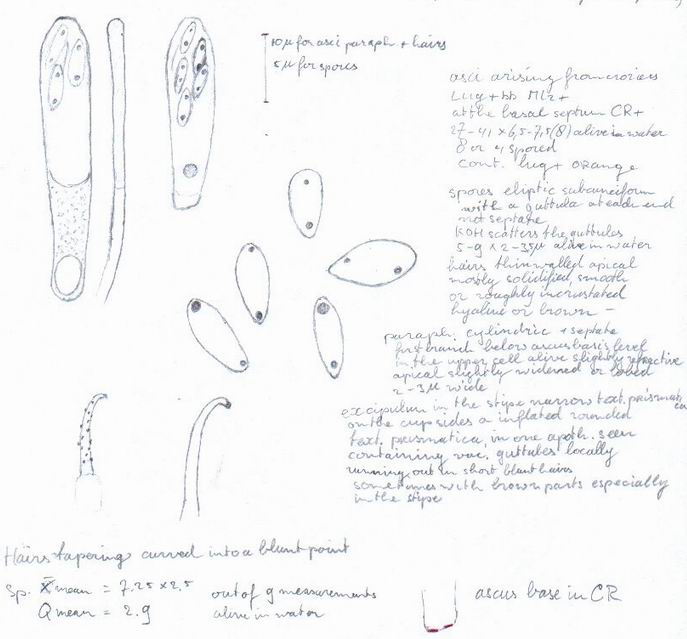 10µ for asci paraph + hairs
5µ for spores
asci arising from croziers
Lug + bb Mlz +
at the basal septum CR+
27-41 x 6,5-7,5(8) alive in water
8 or 4 spored
cont. lug + orange
spores eliptic subcuneiform
with a guttula at each end
not septate
KOH scatters the guttules
5-9 x 2-3,5µ alive in water
hairs thinwalled apical
mostly solidified, smooth
or roughly incrustated
hyaline or brown -
paraph. cylindric + septate
first branch below ascus basis level
in the upper cell alive slightly refractive
apical slightly widened or lobed
2-3µ wide
excipulum in the stipe narrow text. prismatica
on the cup sides a inflated rounded
text. prismatica, in one apoth. seen
containing vac. guttules locally
running out in short blunt hairs
sometimes with brown parts especially
in the stipe
Hairs tapering curved into a blunt point
Sp. X̄ mean = 7.25 x 2,5 out of 9 measurements
Q mean = 2.9 alive in water
ascus base in CR